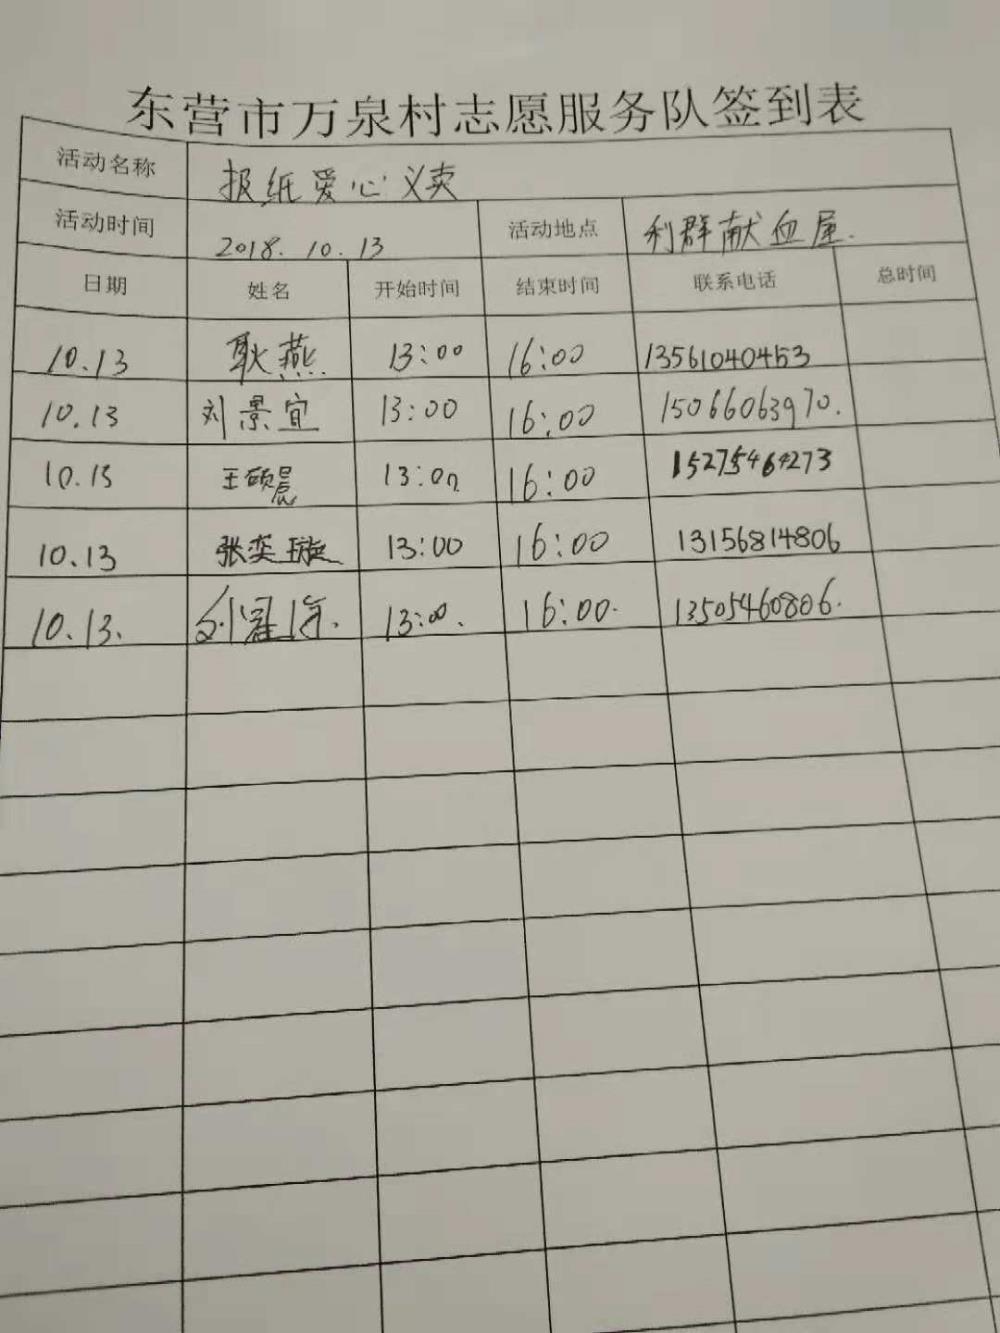 东营市万泉村志愿服务队签到表
活动名称 报纸爱心义卖
活动时间 2018.10.13 活动地点 利群献血屋.
日期 姓名 开始时间 结束时间 联系电话 总时间
10.13 耿燕 13:00 16:00 13561040453
10.13 刘景宜 13:00 16:00 15066063970.
10.13 王硕晨 13:00 16:00 15275464273
10.13 张奕璇 13:00 16:00 13156814806
10.13. 13:00. 16:00. 13505460806.